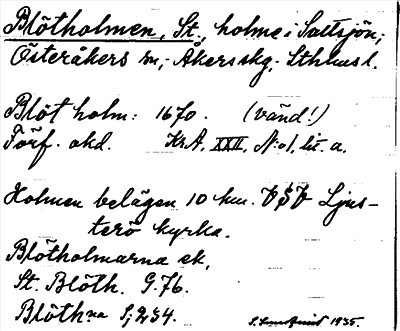 Blötholmen, St., holme i Saltsjön,
Österåkers sn, Åkers skg, Sthlms l.
Blöt holm: 1670. (vänd!)
Förf. okd. KrA, XXII, N:o 1, lit. a.
Holmen belägen 10 km. VSV Ljus-
terö kyrka.
Blötholmarna ek,
St. Blöth. G. 76.
Blöth:na S, 234.
1935.